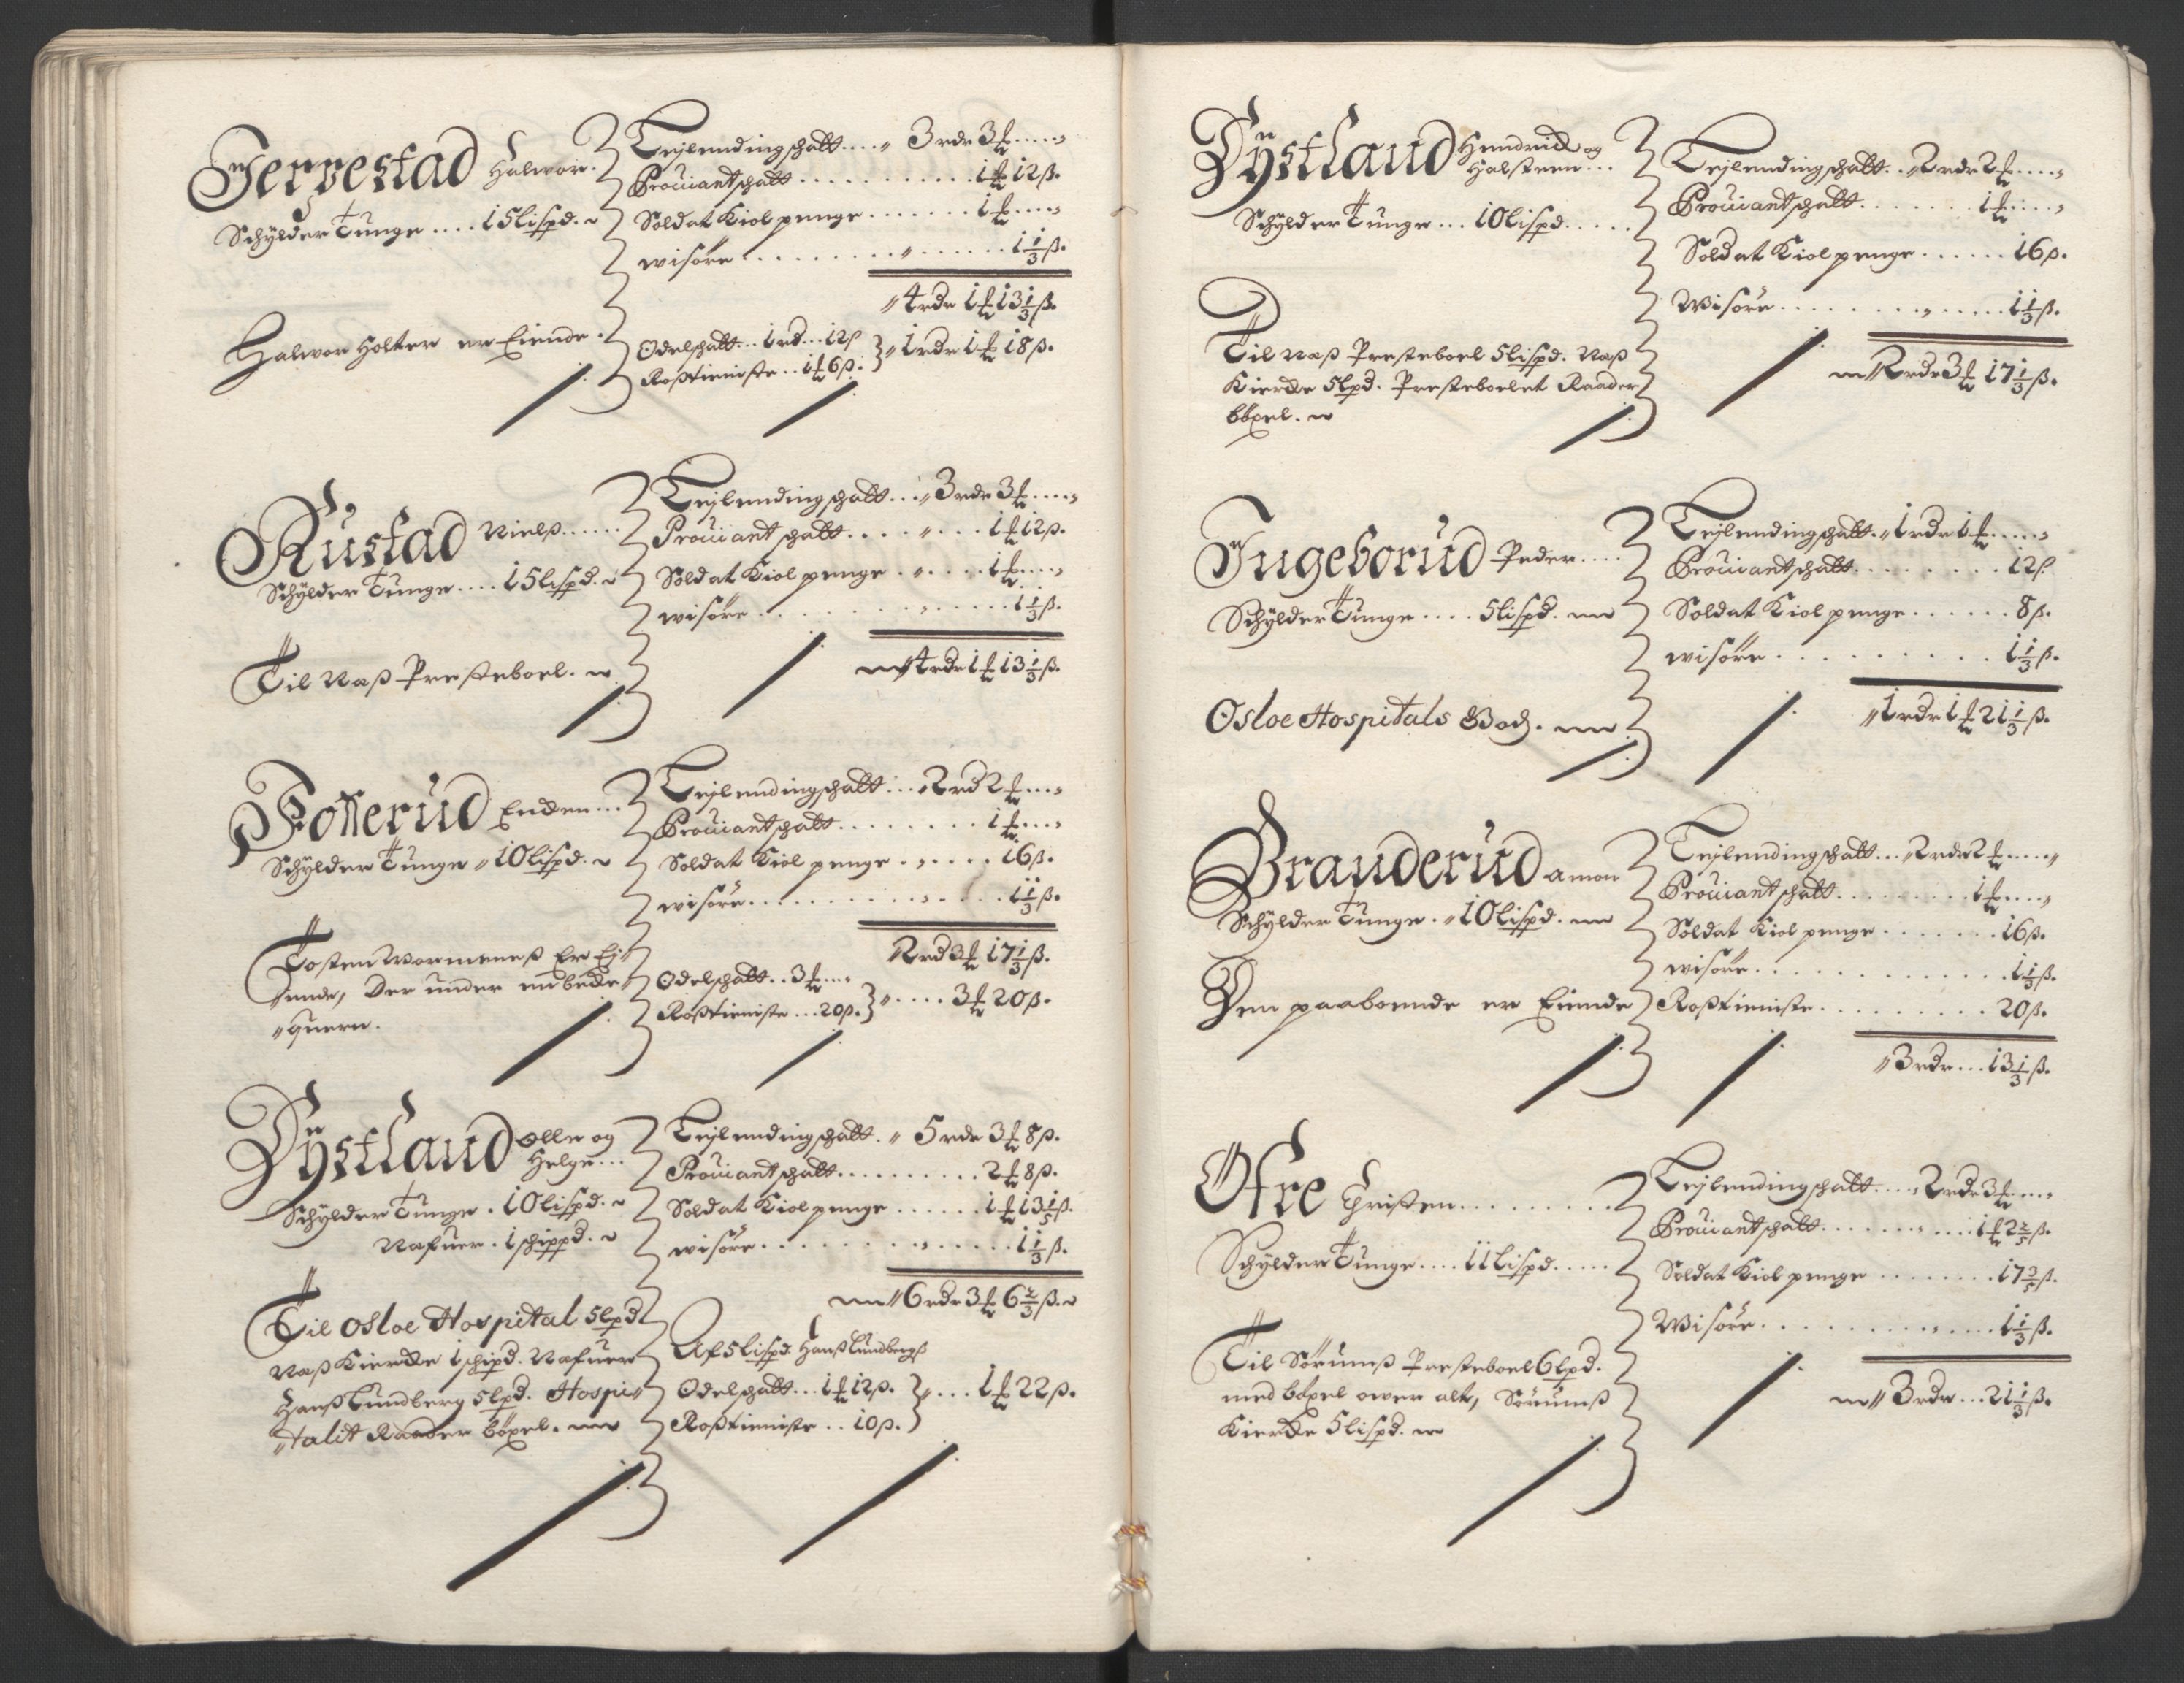 Jerpestad Halwor.
Schÿlder Tunge .... 15 lispd.
Halwor Holter er Eiende.
Leylendingschatt .... 3 rdr 3 £ ....
Prouiantschatt ............ 1 £ 12 ß.
Soldat Kiol penge ....... 1 £ ....
wisöre ................ 1 1/3 ß.
4 rdr 1 £ 13 1/3 ß.
Odelschatt... 1 rd... 12 ß
Roßtieniste .. 1 £ 6 ß. } 1 rdr 1 £ 18 ß.
Rustad Nielß......
Schÿlder Tunge .... 15 lispd.
Til Naß Presteboel.
Leylendingschatt ... 3 rdr 3 £ ....
Prouiantschatt ........ 1 £ 12 ß.
Soldat Kiol penge ...... 1 £ ....
wisöre ................ 1 1/3 ß.
4 rdr 1 £ 13 1/3 ß.
Fosserud Enden ...
Schÿlder Tunge 10 lispd.
Tosten Wormeneß Er Ei-
ende, Der under
quern.
Leylendingschatt ... 2 rd 2 £ ...
Prouiantschatt ......... 1 £ ...
Soldat Kiol penge ...... 16 ß.
wisöre ............... 1 1/3 ß.
2 rd 3 £ 17 1/3 ß.
Odelschatt .. 3 £ ...
Roßtieniste ... 20 ß. } .... 3 £ 20 ß.
Dÿstland Olle og
Helge ...
Schÿlder Tunge . 10 lispd.
Nafuer . 1 schippd.
Til Osloe Hospital 5 lpd
Naß Kircke 1 schipd. Nafuer
Hanß Lundberg 5 lpd. Hospi-
talit Raader böxel.
Leylendingschatt . 5 rdr 3 £ 8 ß.
Prouiantschatt .......... 2 £ 8 ß.
Soldat Kiol penge ...... 1 £ 13 1/5 ß.
wisöre ............... 1 1/3 ß.
6 rdr 3 £ 6 2/3 ß.
Af 5 lispd. Hanß Lundbergß
Odelschatt ... 1 £ 12 ß.
Roßtieniste .. 10 ß. } ... 1 £ 22 ß.
Dÿstland Hendrich og
Halsteen ...
Schÿlder Tunge ... 10 lispd .....
Til Naß Presteboel 5 lispd. Naß
Kircke 5 lpd. Presteboelet Raader
böxel.
Leylendingschatt .. 2 rdr 2 £ ....
Prouiantschatt ........ 1 £ ....
Soldat Kiol penge ...... 16 ß.
Wisöre ............... 1 1/3 ß.
2 rdr 3 £ 17 1/3 ß.
Ingeborud Peder ....
Schÿlder Tunge .... 5 lispd.
Osloe Hospitals God.
Leylendingschatt . 1 rdr 1 £ .....
Prouiantschatt ......... 12 ß
Soldat Kiol penge ...... 8 ß.
wisöre .............. 1 1/3 ß.
1 rdr 1 £ 21 1/3 ß.
Branderud Amon
Schÿlder Tunge . 10 lispd.
Den paaboende er Eiende
Leylendingschatt ... 2 rdr 2 £ .....
Prouiantschatt .......... 1 £ ....
Soldat Kiol penge ....... 16 ß.
wisöre ............... 1 1/3 ß.
Roßtieniste .......... 20 ß.
3 rdr ... 13 1/3 ß.
Ofre Christen .........
Schÿlder Tunge .... 11 lispd .....
Til Sörumß Presteboel 6 lpd.
med böxel ower alt, Sörumß
Kircke 5 lispd.
Leylendingschatt .... 2 rdr 3 £ ....
Prouiantschatt .......... 1 £ 2 2/5 ß.
Soldat Kiol penge ........ 17 3/5 ß.
Wisöre ............... 1 1/3 ß.
3 rdr ... 21 1/3 ß.